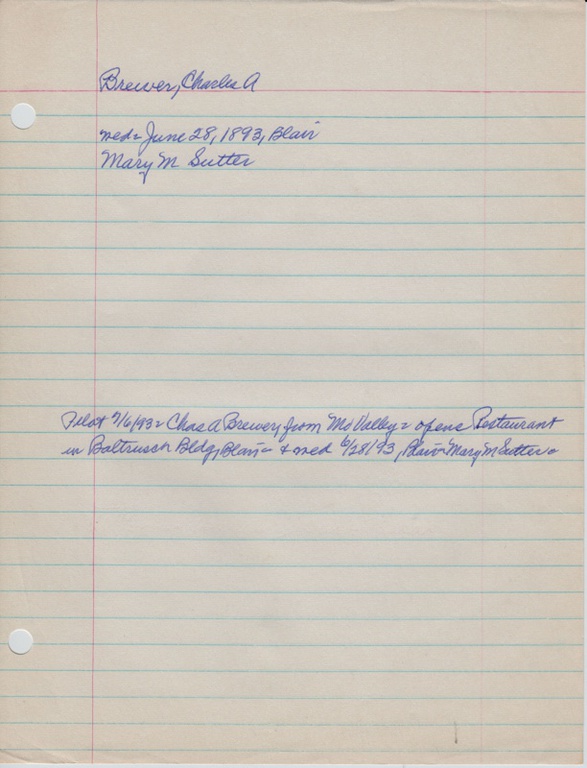 Brewer, Charles A
wed = June 28, 1893, Blair
Mary M Sutter
Pilot 7/6/93 = Chas A Brewer, from Mo Valley = opens Restaurant
in Bldg, Blair = & wed 6/28/93, Blair = Mary M Sutter =